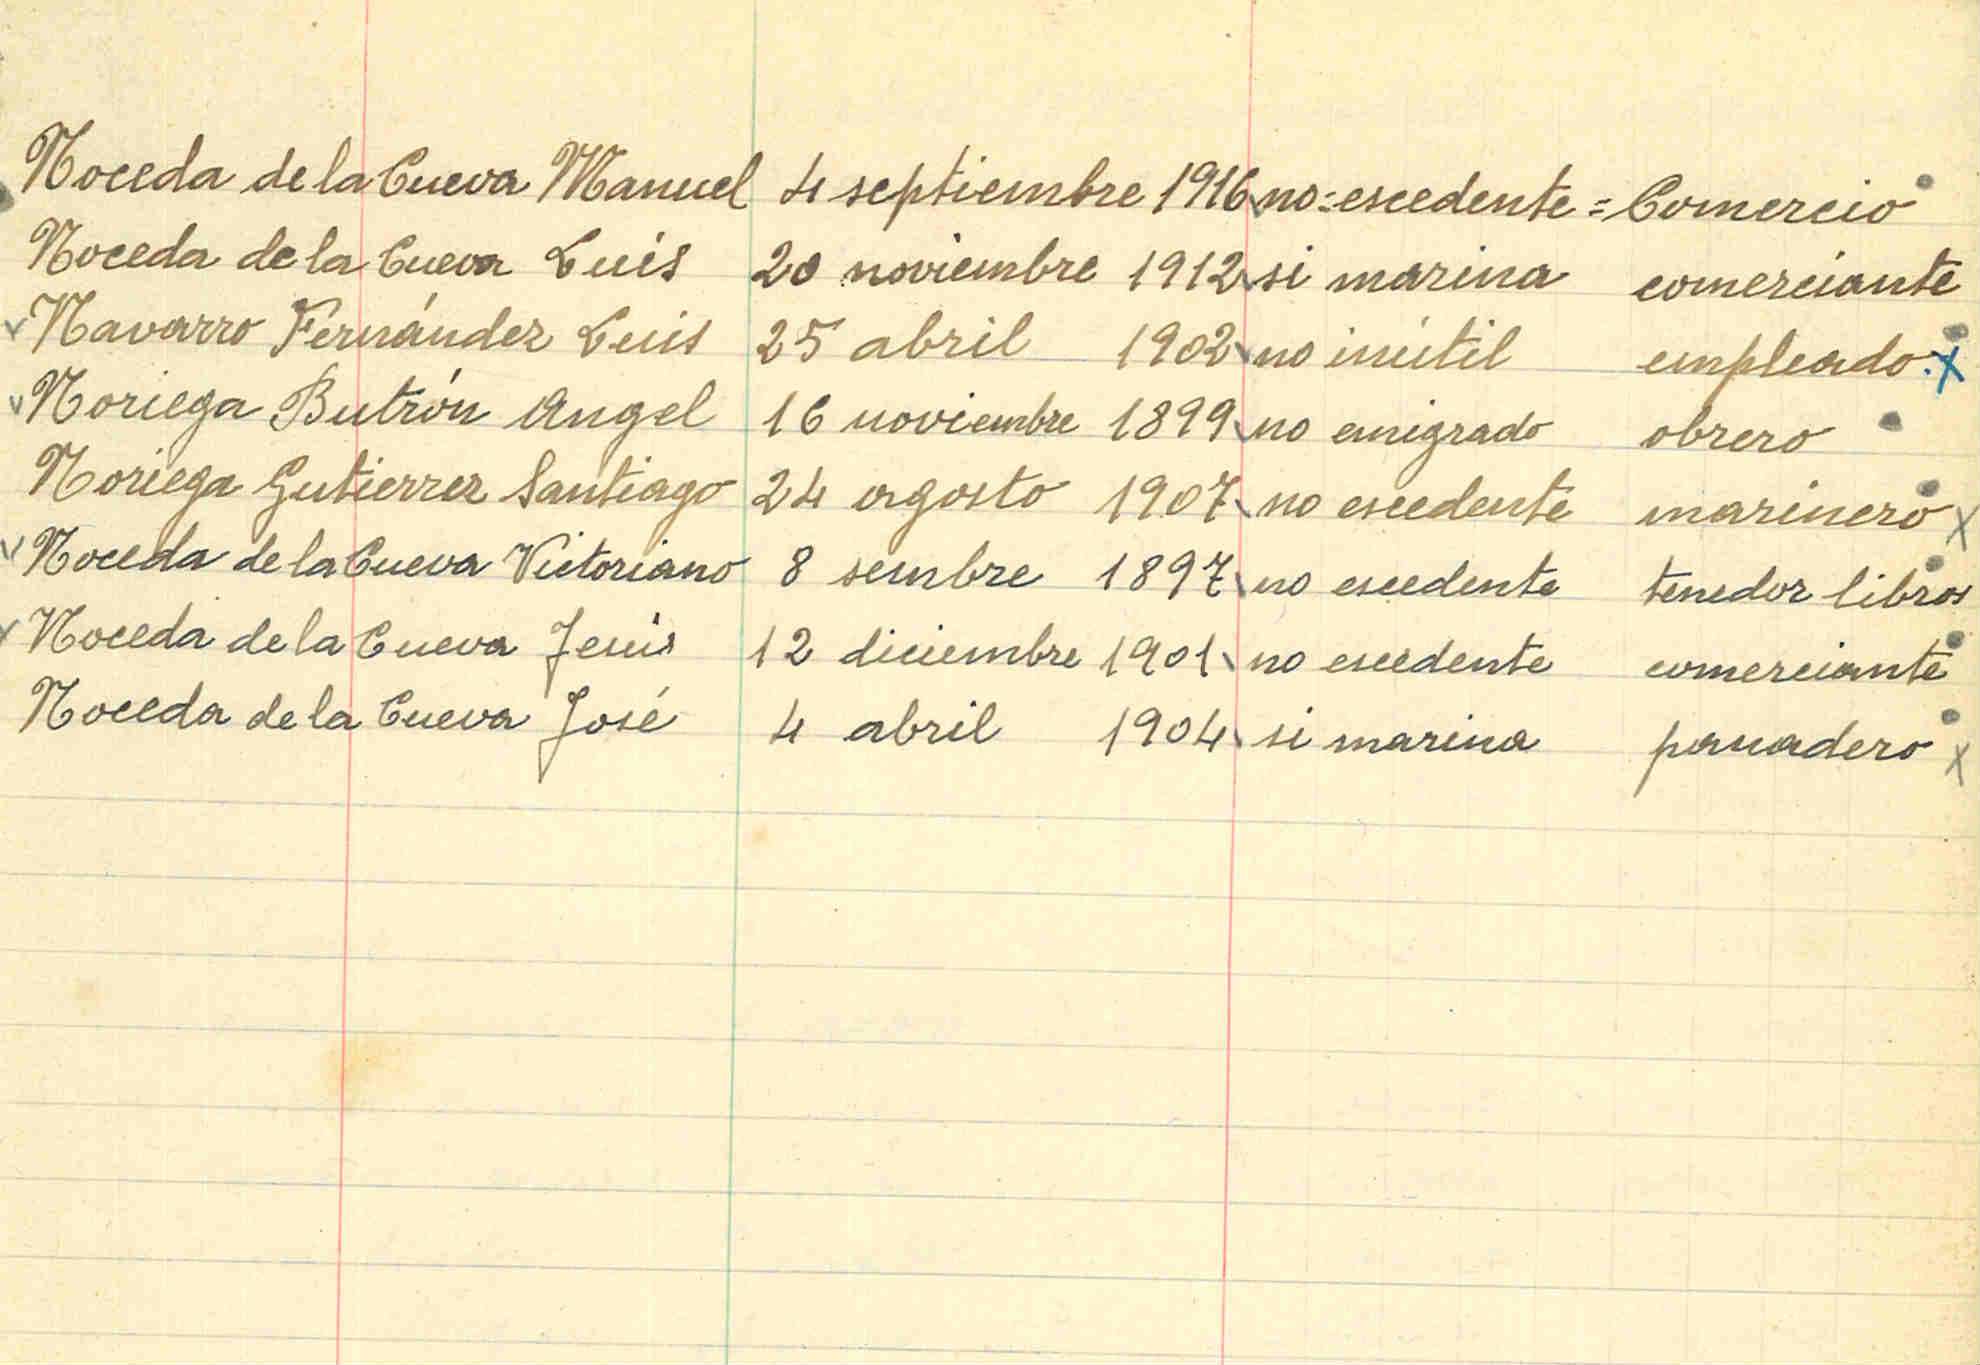 Noceda de la Cueva Manuel 4 septiembre 1916 no=escedente = Comercio
Noceda de la Cueva Luis 20 noviembre 1912 si marina comerciante
Navarro Fernández Luis 25 abril 1902 no inútil empleado. X
Noriega Butrón Angel 16 noviembre 1899 no emigrado obrero
Noriega Gutierrez Santiago 24 agosto 1907 no escedente marinero X
Noceda de la Cueva Victoriano 8 sembre 1897 no escedente tenedor libros
Noceda de la Cueva Jesús 12 diciembre 1901 no escedente comerciante
Noceda de la Cueva José 4 abril 1904 si marina panadero X